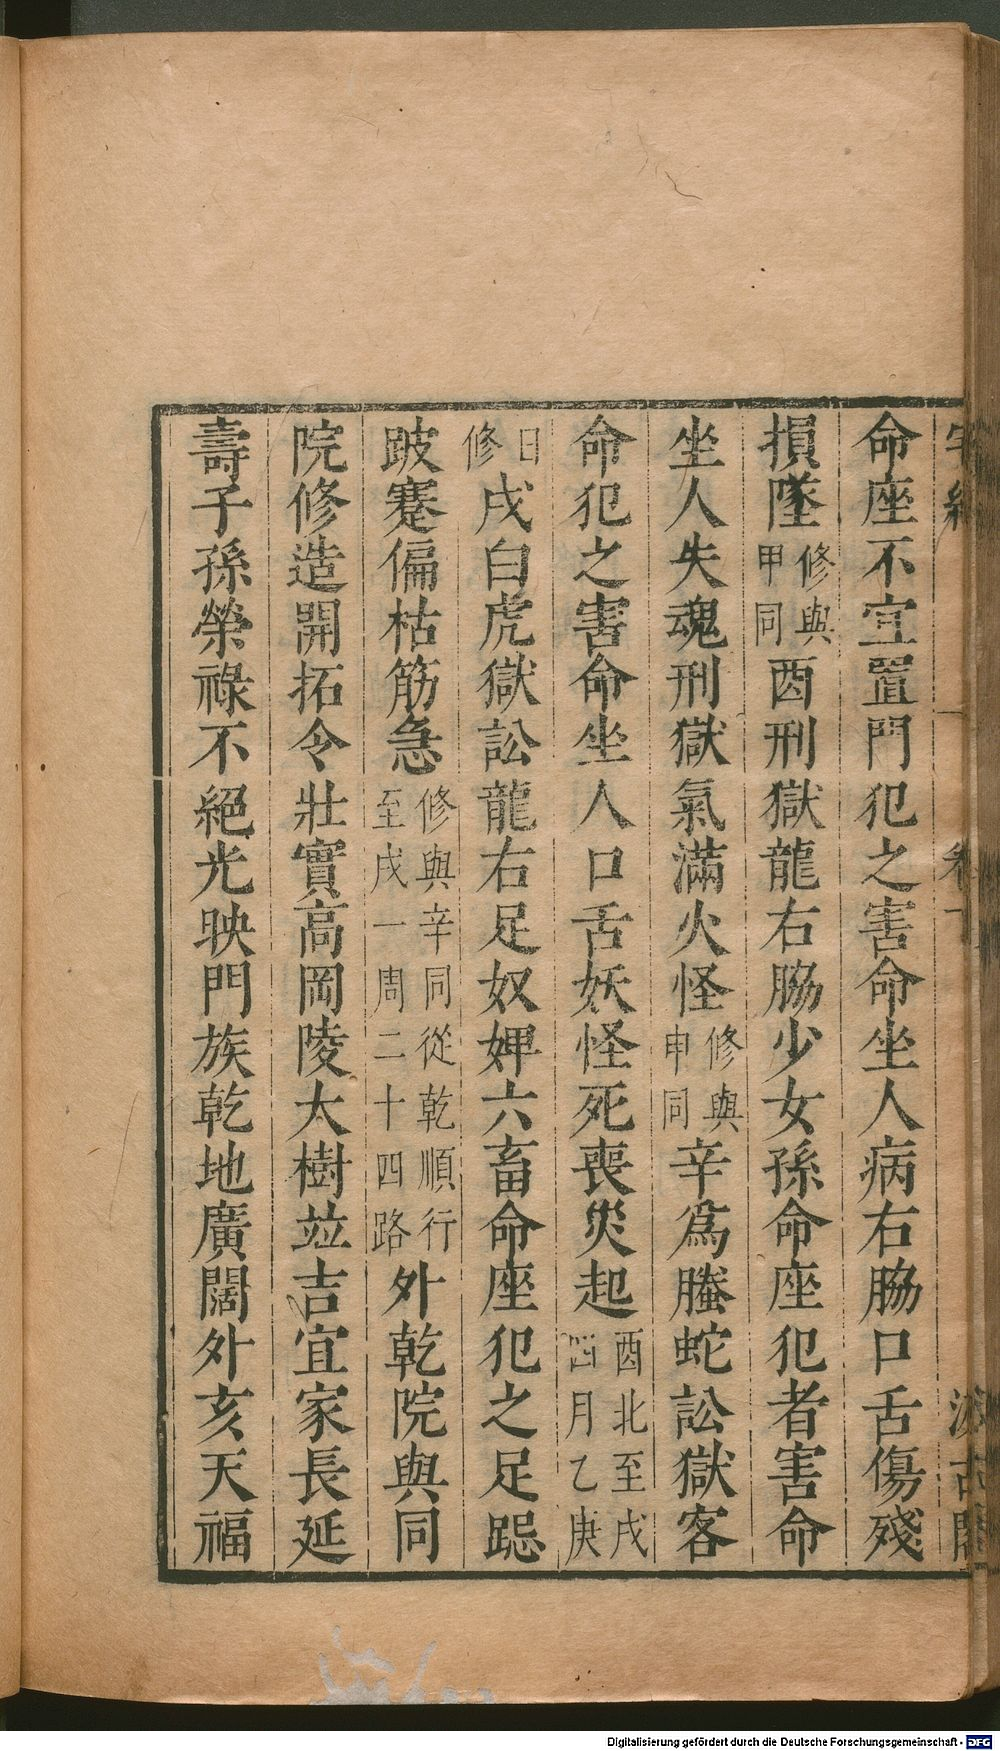 命座不宜置門犯之害命坐人病右脇口舌傷殘
損墜修與甲同酉刑獄龍右脇少女孫命座犯者害命
坐人失魂刑獄氣滿火怪修與申同辛爲螣蛇訟獄客
命犯之害命坐人口舌妖怪死喪災起酉北至戌四月乙庚
日修戌白虎獄訟龍右足奴婢六畜命座犯之足跽
跛蹇偏枯筋急修與辛同從乾順行至戌一周二十四路外乾院與同
院修造開拓令壯實高岡陵大樹竝吉宜家長延
壽子孫榮祿不絕光映門族乾地廣闊外亥天福
Digitalisierung gefördert durch die Deutsche Forschungsgemeinschaft - DFG